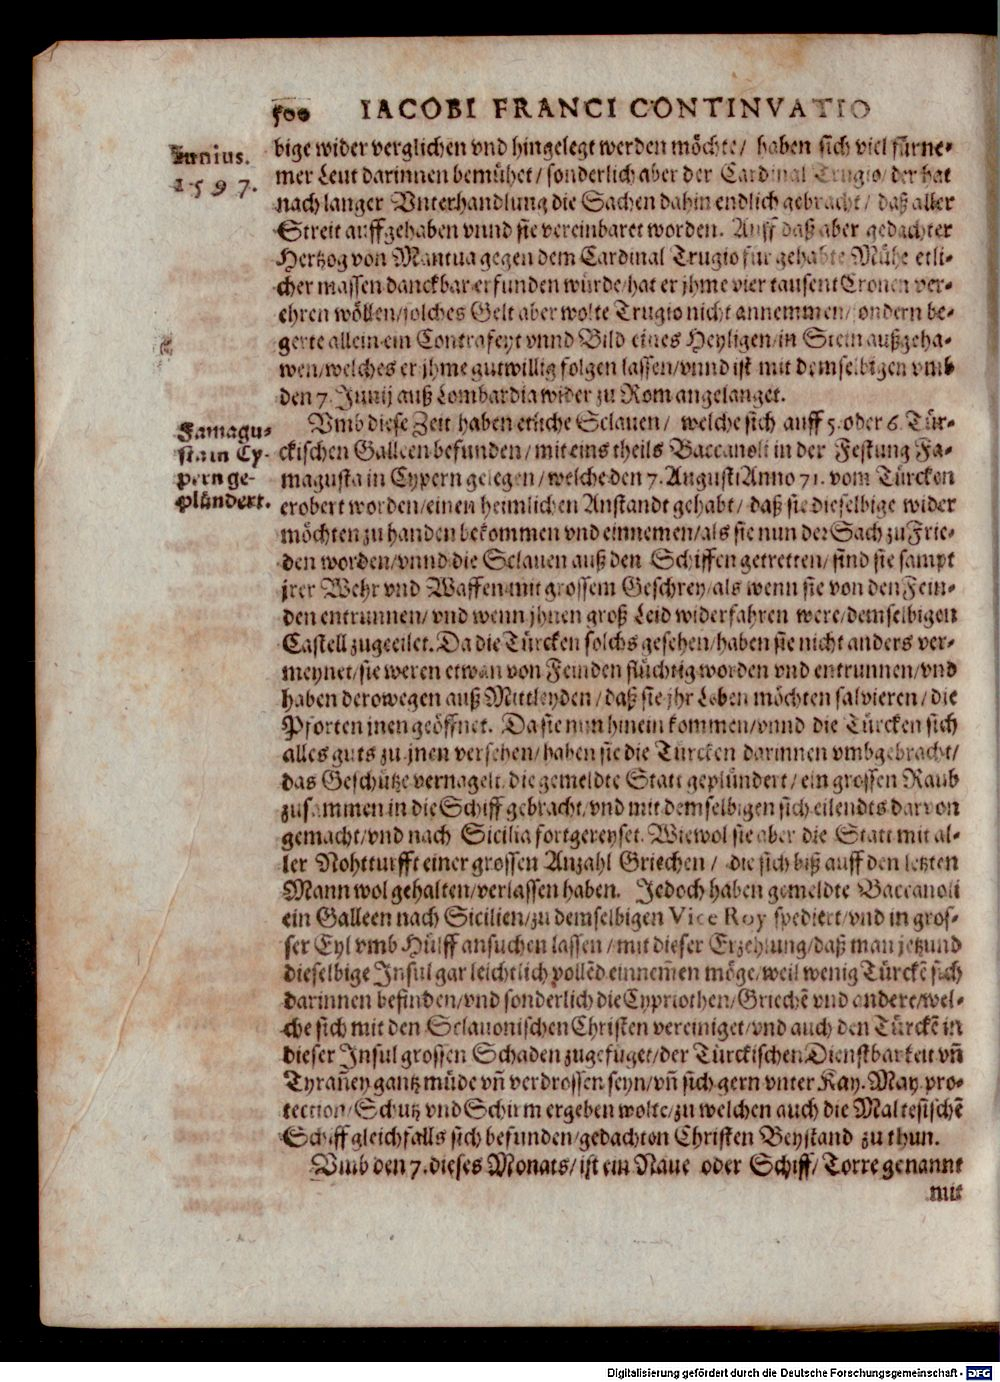 500 IACOBI FRANCI CONTINVATIO
Iunius.
1597.
bige wider verglichen vnd hingelegt werden möchte/ haben sich viel fürne-
mer Leut darinnen bemühet/ sonderlich aber der Cardinal Trugio/ der hat
nach langer Vnterhandlung die Sachen dahin endlich gebracht/ daß aller
Streit auffgehaben vnnd sie vereinbaret worden. Auff daß aber gedachter
Hertzog von Mantua gegen dem Cardinal Trugio für gehabte Mühe etli-
cher massen danckbar erfunden würde/ hat er jhme vier tausent Cronen ver-
ehren wöllen/ solches Gelt aber wolte Trugio nicht annemmen/ sondern be-
gerte allein ein Contrafeyt vnnd Bild eines Heyligen/ in Stein außgeha-
wen/ welches er jhme gutwillig folgen lassen/ vnnd ist mit demselbigen vmb
den 7. Junij auß Lombardia wider zu Rom angelanget.
Famagu-
sta in Cy-
pern ge-
plündert.
Vmb diese Zeit haben etliche Sclauen/ welche sich auff 5. oder 6. Tür-
ckischen Galleen befunden/ mit eins theils Baccanoli in der Festung Fa-
magusta in Cypern gelegen/ welche den 7. Augusti Anno 71. vom Türcken
erobert worden/ einen heimlichen Anstandt gehabt/ daß sie dieselbige wider
möchten zu handen bekommen vnd einnemen/ als sie nun der Sach zu Frie-
den worden/ vnnd die Sclauen auß den Schiffen getretten/ sind sie sampt
jrer Wehr vnd Waffen mit grossem Geschrey/ als wenn sie von den Fein-
den entrunnen/ vnd wenn jhnen groß Leid widerfahren were/ demselbigen
Castell zugeeilet. Da die Türcken solchs gesehen/ haben sie nicht anders ver-
meynet/ sie weren etwan von Feinden flüchtig worden vnd entrunnen/ vnd
haben derowegen auß Mittleyden/ daß sie jhr Leben möchten salvieren/ die
Pforten jnen geöffnet. Da sie nun hinein kommen/ vnnd die Türcken sich
alles guts zu jnen versehen/ haben sie die Türcken darinnen vmbgebracht/
das Geschütze vernagelt/ die gemeldte Statt geplündert/ ein grossen Raub
zusammen in die Schiff gebracht/ vnd mit demselbigen sich eilendts darvon
gemacht/ vnd nach Sicilia fortgereyset. Wiewol sie aber die Statt mit al-
ler Nohtturfft einer grossen Anzahl Griechen/ die sich biß auff den letzten
Mann wol gehalten/ verlassen haben. Jedoch haben gemeldte Baccanoli
ein Galleen nach Sicilien/ zu demselbigen Vice Roy spediert/ vnd in gros-
ser Eyl vmb Hülff ansuchen lassen/ mit dieser Erzehlung/ daß man jetzund
dieselbige Insul gar leichtlich vollẽd einnem̃en möge/ weil wenig Türckẽ sich
darinnen befinden/ vnd sonderlich die Cypriothen/ Griechẽ vnd andere/ wel-
che sich mit den Sclauonischen Christen vereiniget/ vnd auch den Türckẽ in
dieser Insul grossen Schaden zugefüget/ der Türckischen Dienstbarkeit vñ
Tyrañey gantz müde vñ verdrossen seyn/ vñ sich gern vnter Kay. May. pro-
tection/ Schutz vnd Schirm ergeben wolte/ zu welchen auch die Maltesischẽ
Schiff gleichfalls sich befunden/ gedachten Christen Beystand zu thun.
Vmb den 7. dieses Monats/ ist ein Naue oder Schiff/ Torre genannt
mit
Digitalisierung gefördert durch die Deutsche Forschungsgemeinschaft - DFG